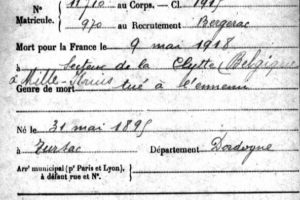 N° 11710 au Corps. — Cl. 1915
Matricule. 970 au Recrutement Bergerac
Mort pour la France le 9 mai 1918
à Secteur de la Clytte (Belgique)
Genre de mort tué à l'ennemi
Né le 31 mai 1895
à Tursac Département Dordogne
Arrt municipal (pr Paris et Lyon),
à défaut rue et N°.